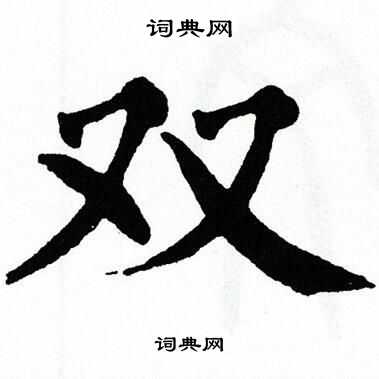 词典网
双
词典网